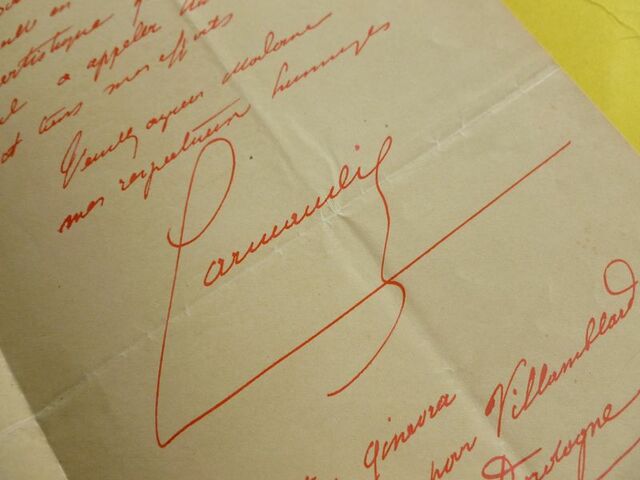 artistique
a appeler
et tous mes efforts
Veuillez agréer Madame
mes respectueux hommages
Larmandie
Ginevra
pour Villamblard
Dordogne